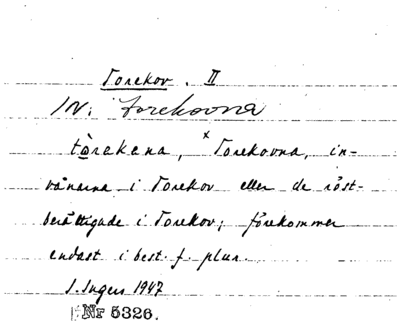 Torekov. II
IN: Torekovna
tòrekena, ˣTorekovna, in-
vånarna i Torekov eller de röst-
berättigade i Torekov; förekommer
endast i best. f. plur.
S. Ingers 1947
Nr 5326.